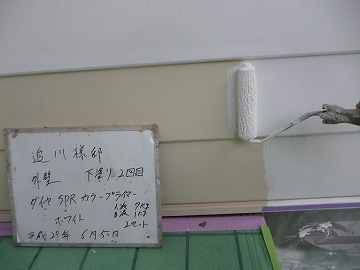 追川様邸
外壁 下塗り2回目
ダイヤ SPR カラープライマー
ホワイト
2セット
平成29年 6月5日